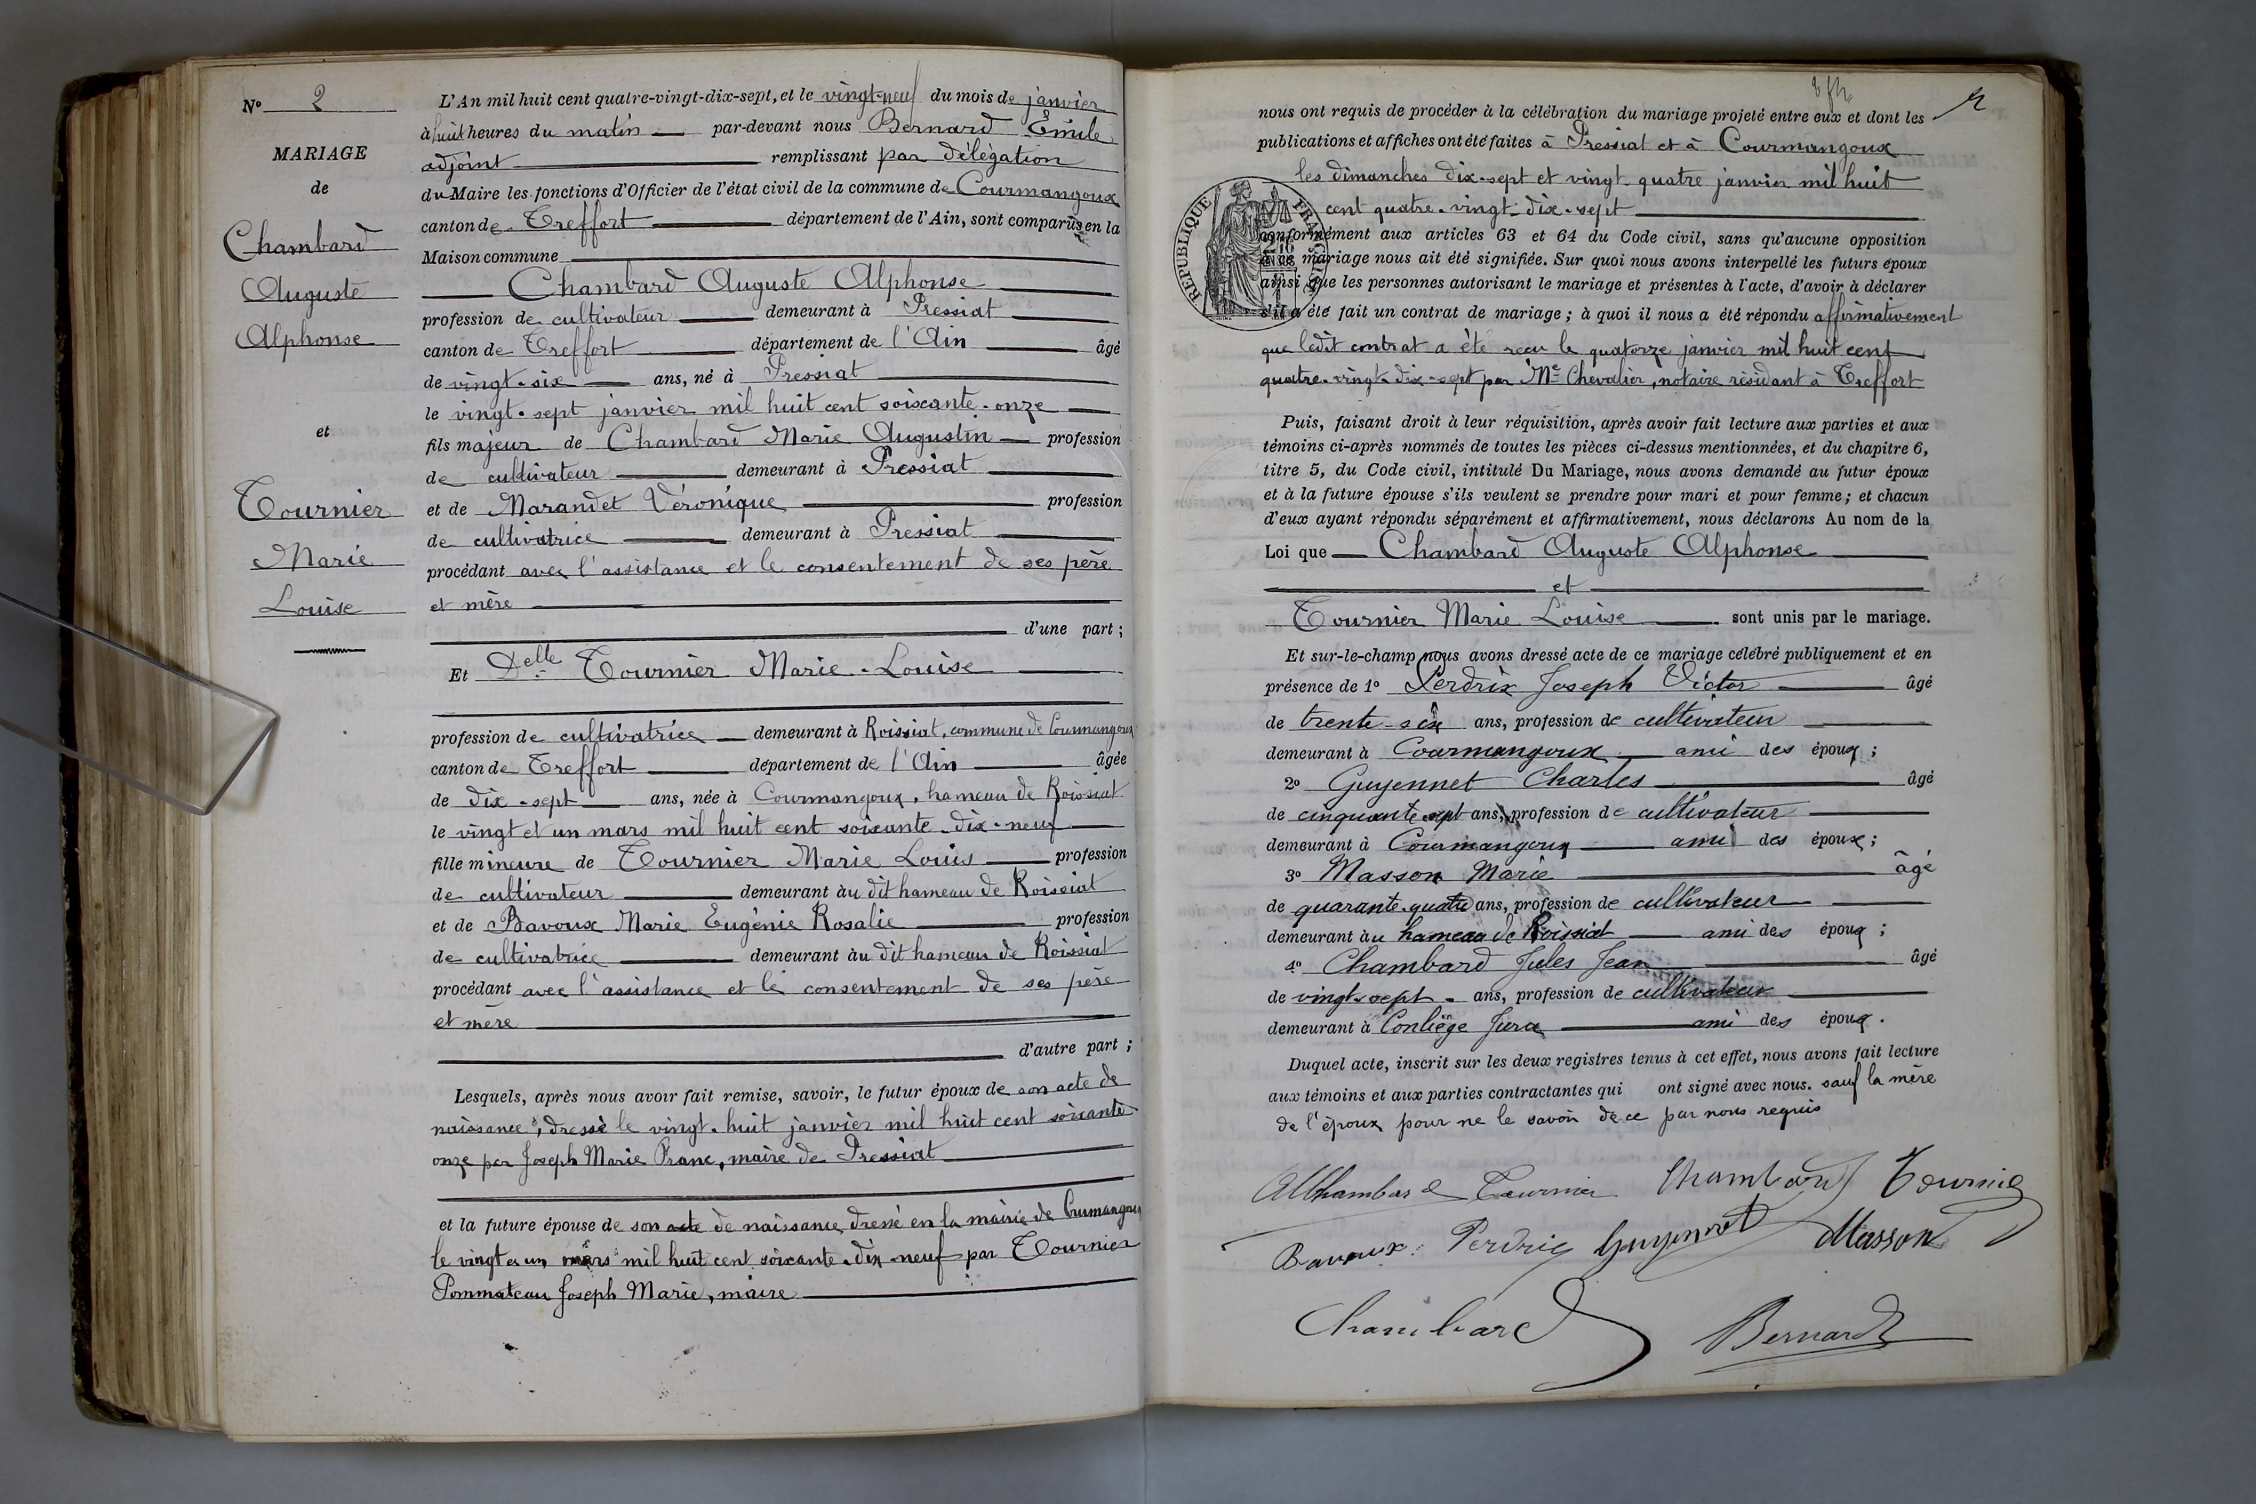 N° 2
MARIAGE
de
Chambard
Auguste
Alphonse
et
Tournier
Marie
Louise
L'An mil huit cent quatre-vingt-dix-sept, et le vingt-neuf du mois de janvier
à huit heures du matin par-devant nous Bernard Émile
adjoint remplissant par délégation
du Maire les fonctions d'Officier de l'état civil de la commune de Courmangoux
canton de Treffort département de l'Ain, sont comparus en la
Maison commune
Chambard Auguste Alphonse
profession de cultivateur demeurant à Pressiat
canton de Treffort département de l'Ain âgé
de vingt-six ans, né à Pressiat
le vingt-sept janvier mil huit cent soixante-onze
fils majeur de Chambard Marie Augustin profession
de cultivateur demeurant à Pressiat
et de Marandet Véronique profession
de cultivatrice demeurant à Pressiat
procédant avec l'assistance et le consentement de ses père
et mère
d'une part ;
Et Delle Tournier Marie-Louise
profession de cultivatrice demeurant à Roissiat, commune de Courmangoux
canton de Treffort département de l'Ain âgée
de dix-sept ans, née à Courmangoux, hameau de Roissiat
le vingt et un mars mil huit cent soixante-dix-neuf
fille mineure de Tournier Marie Louis profession
de cultivateur demeurant au dit hameau de Roissiat
et de Bavoux Marie Eugénie Rosalie profession
de cultivatrice demeurant au dit hameau de Roissiat
procédant avec l'assistance et le consentement de ses père
et mère
d'autre part ;
Lesquels, après nous avoir fait remise, savoir, le futur époux de son acte de
naissance, dressé le vingt-huit janvier mil huit cent soixante
onze par Joseph Marie Franc, maire de Pressiat
et la future épouse de son acte de naissance dressé en la mairie de Courmangoux
le vingt et un mars mil huit cent soixante-dix-neuf par Tournier
Pommateau Joseph Marie, maire
2
nous ont requis de procéder à la célébration du mariage projeté entre eux et dont les
publications et affiches ont été faites à Pressiat et à Courmangoux
les dimanches dix-sept et vingt-quatre janvier mil huit
cent quatre-vingt-dix-sept
conformément aux articles 63 et 64 du Code civil, sans qu'aucune opposition
à ce mariage nous ait été signifiée. Sur quoi nous avons interpellé les futurs époux
ainsi que les personnes autorisant le mariage et présentes à l'acte, d'avoir à déclarer
s'il a été fait un contrat de mariage ; à quoi il nous a été répondu affirmativement
que ledit contrat a été reçu le quatorze janvier mil huit cent
quatre-vingt-dix-sept par Me Chevalier, notaire résidant à Treffort
RÉPUBLIQUE FRANÇAISE
Puis, faisant droit à leur réquisition, après avoir fait lecture aux parties et aux
témoins ci-après nommés de toutes les pièces ci-dessus mentionnées, et du chapitre 6,
titre 5, du Code civil, intitulé Du Mariage, nous avons demandé au futur époux
et à la future épouse s'ils veulent se prendre pour mari et pour femme ; et chacun
d'eux ayant répondu séparément et affirmativement, nous déclarons Au nom de la
Loi que Chambard Auguste Alphonse
et
Tournier Marie Louise sont unis par le mariage.
Et sur-le-champ nous avons dressé acte de ce mariage célébré publiquement et en
présence de 1° Perdrix Joseph Victor âgé
de trente-six ans, profession de cultivateur
demeurant à Courmangoux ami des époux ;
2° Guyennet Charles âgé
de cinquante sept ans, profession de cultivateur
demeurant à Courmangoux ami des époux ;
3° Masson Marie âgé
de quarante-quatre ans, profession de cultivateur
demeurant au hameau de Roissiat ami des époux ;
4° Chambard Jules Jean âgé
de vingt-sept ans, profession de cultivateur
demeurant à Conliège Jura ami des époux.
Duquel acte, inscrit sur les deux registres tenus à cet effet, nous avons fait lecture
aux témoins et aux parties contractantes qui ont signé avec nous. sauf la mère
de l'époux pour ne le savoir de ce par nous requis
AChambard Tournier Chambard Tournier
Bavoux Perdrix Guyennet Masson
Chambard Bernard